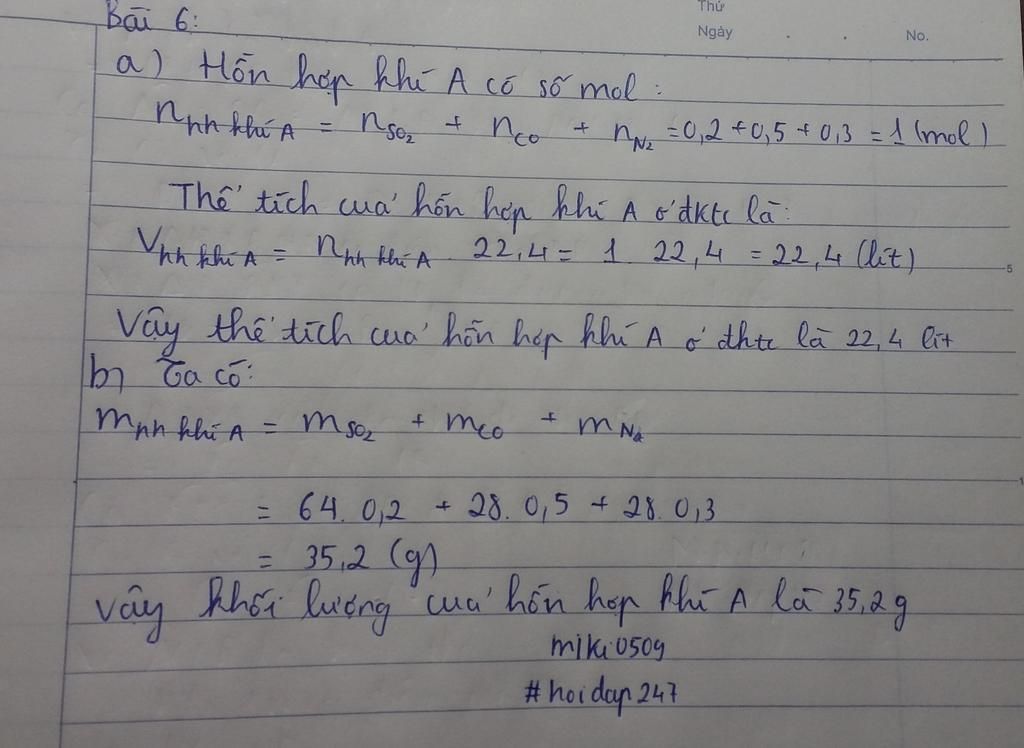 Thứ
Ngày . . No.
Bài 6:
a) Hỗn hợp khí A có số mol:
n hh khí A = n SO2 + n CO + n N2 = 0,2 + 0,5 + 0,3 = 1 (mol)
Thể tích của hỗn hợp khí A ở đktc là:
V hh khí A = n hh khí A . 22,4 = 1 . 22,4 = 22,4 (lít)
5
Vậy thể tích của hỗn hợp khí A ở đktc là 22,4 lít
b) Ta có:
m hh khí A = m SO2 + m CO + m N2
= 64. 0,2 + 28. 0,5 + 28. 0,3
= 35,2 (g)
Vậy khối lượng của hỗn hợp khí A là 35,2g
miki0509
#hoidap247